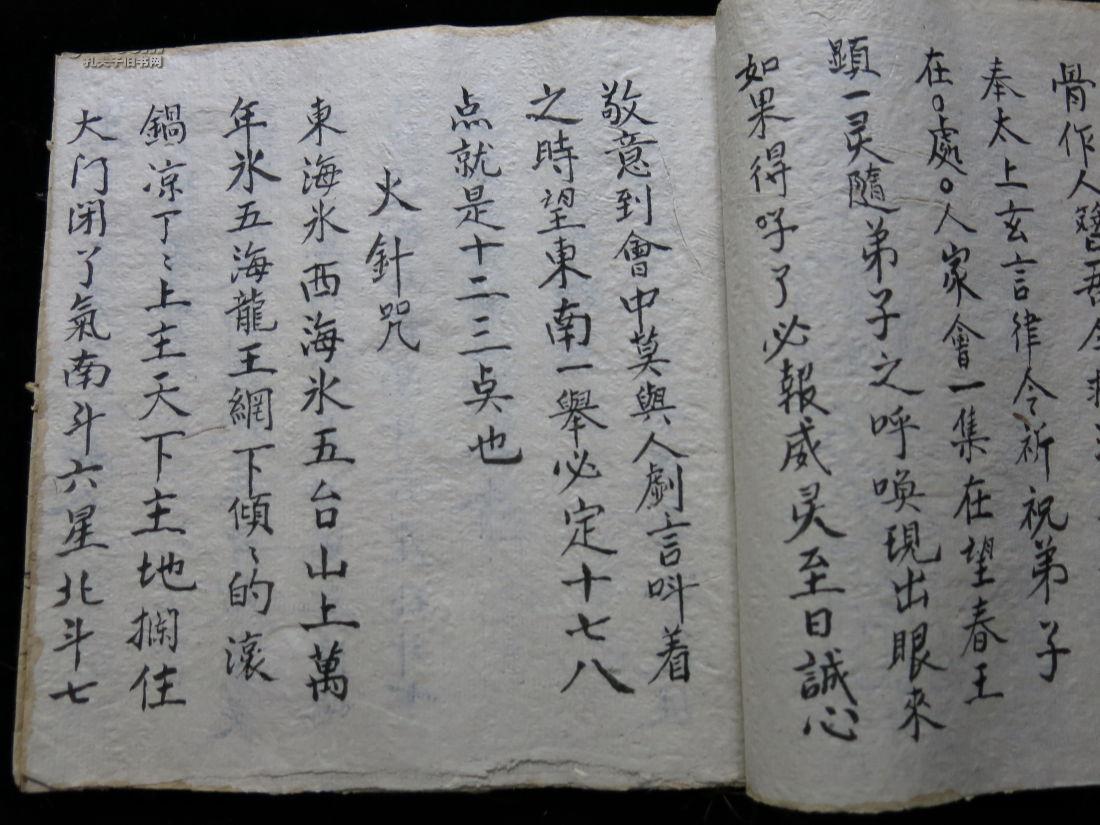 骨作人
奉太上玄言律令祈祝弟子
在○處○人家會一集在望春王
顕一灵隨弟子之呼喚現出眼來
如果得呼了必報威灵至日誠心
敬意到會中莫與人劇言呌着
之時望東南一舉必定十七八
点就是十二三点也
火針咒
東海氷西海氷五台山上萬
年氷五海龍王網下傾〻的滾
鍋凉了〻上主天下主地攔住
大门闭了氣南斗六星北斗七
孔夫子旧书网